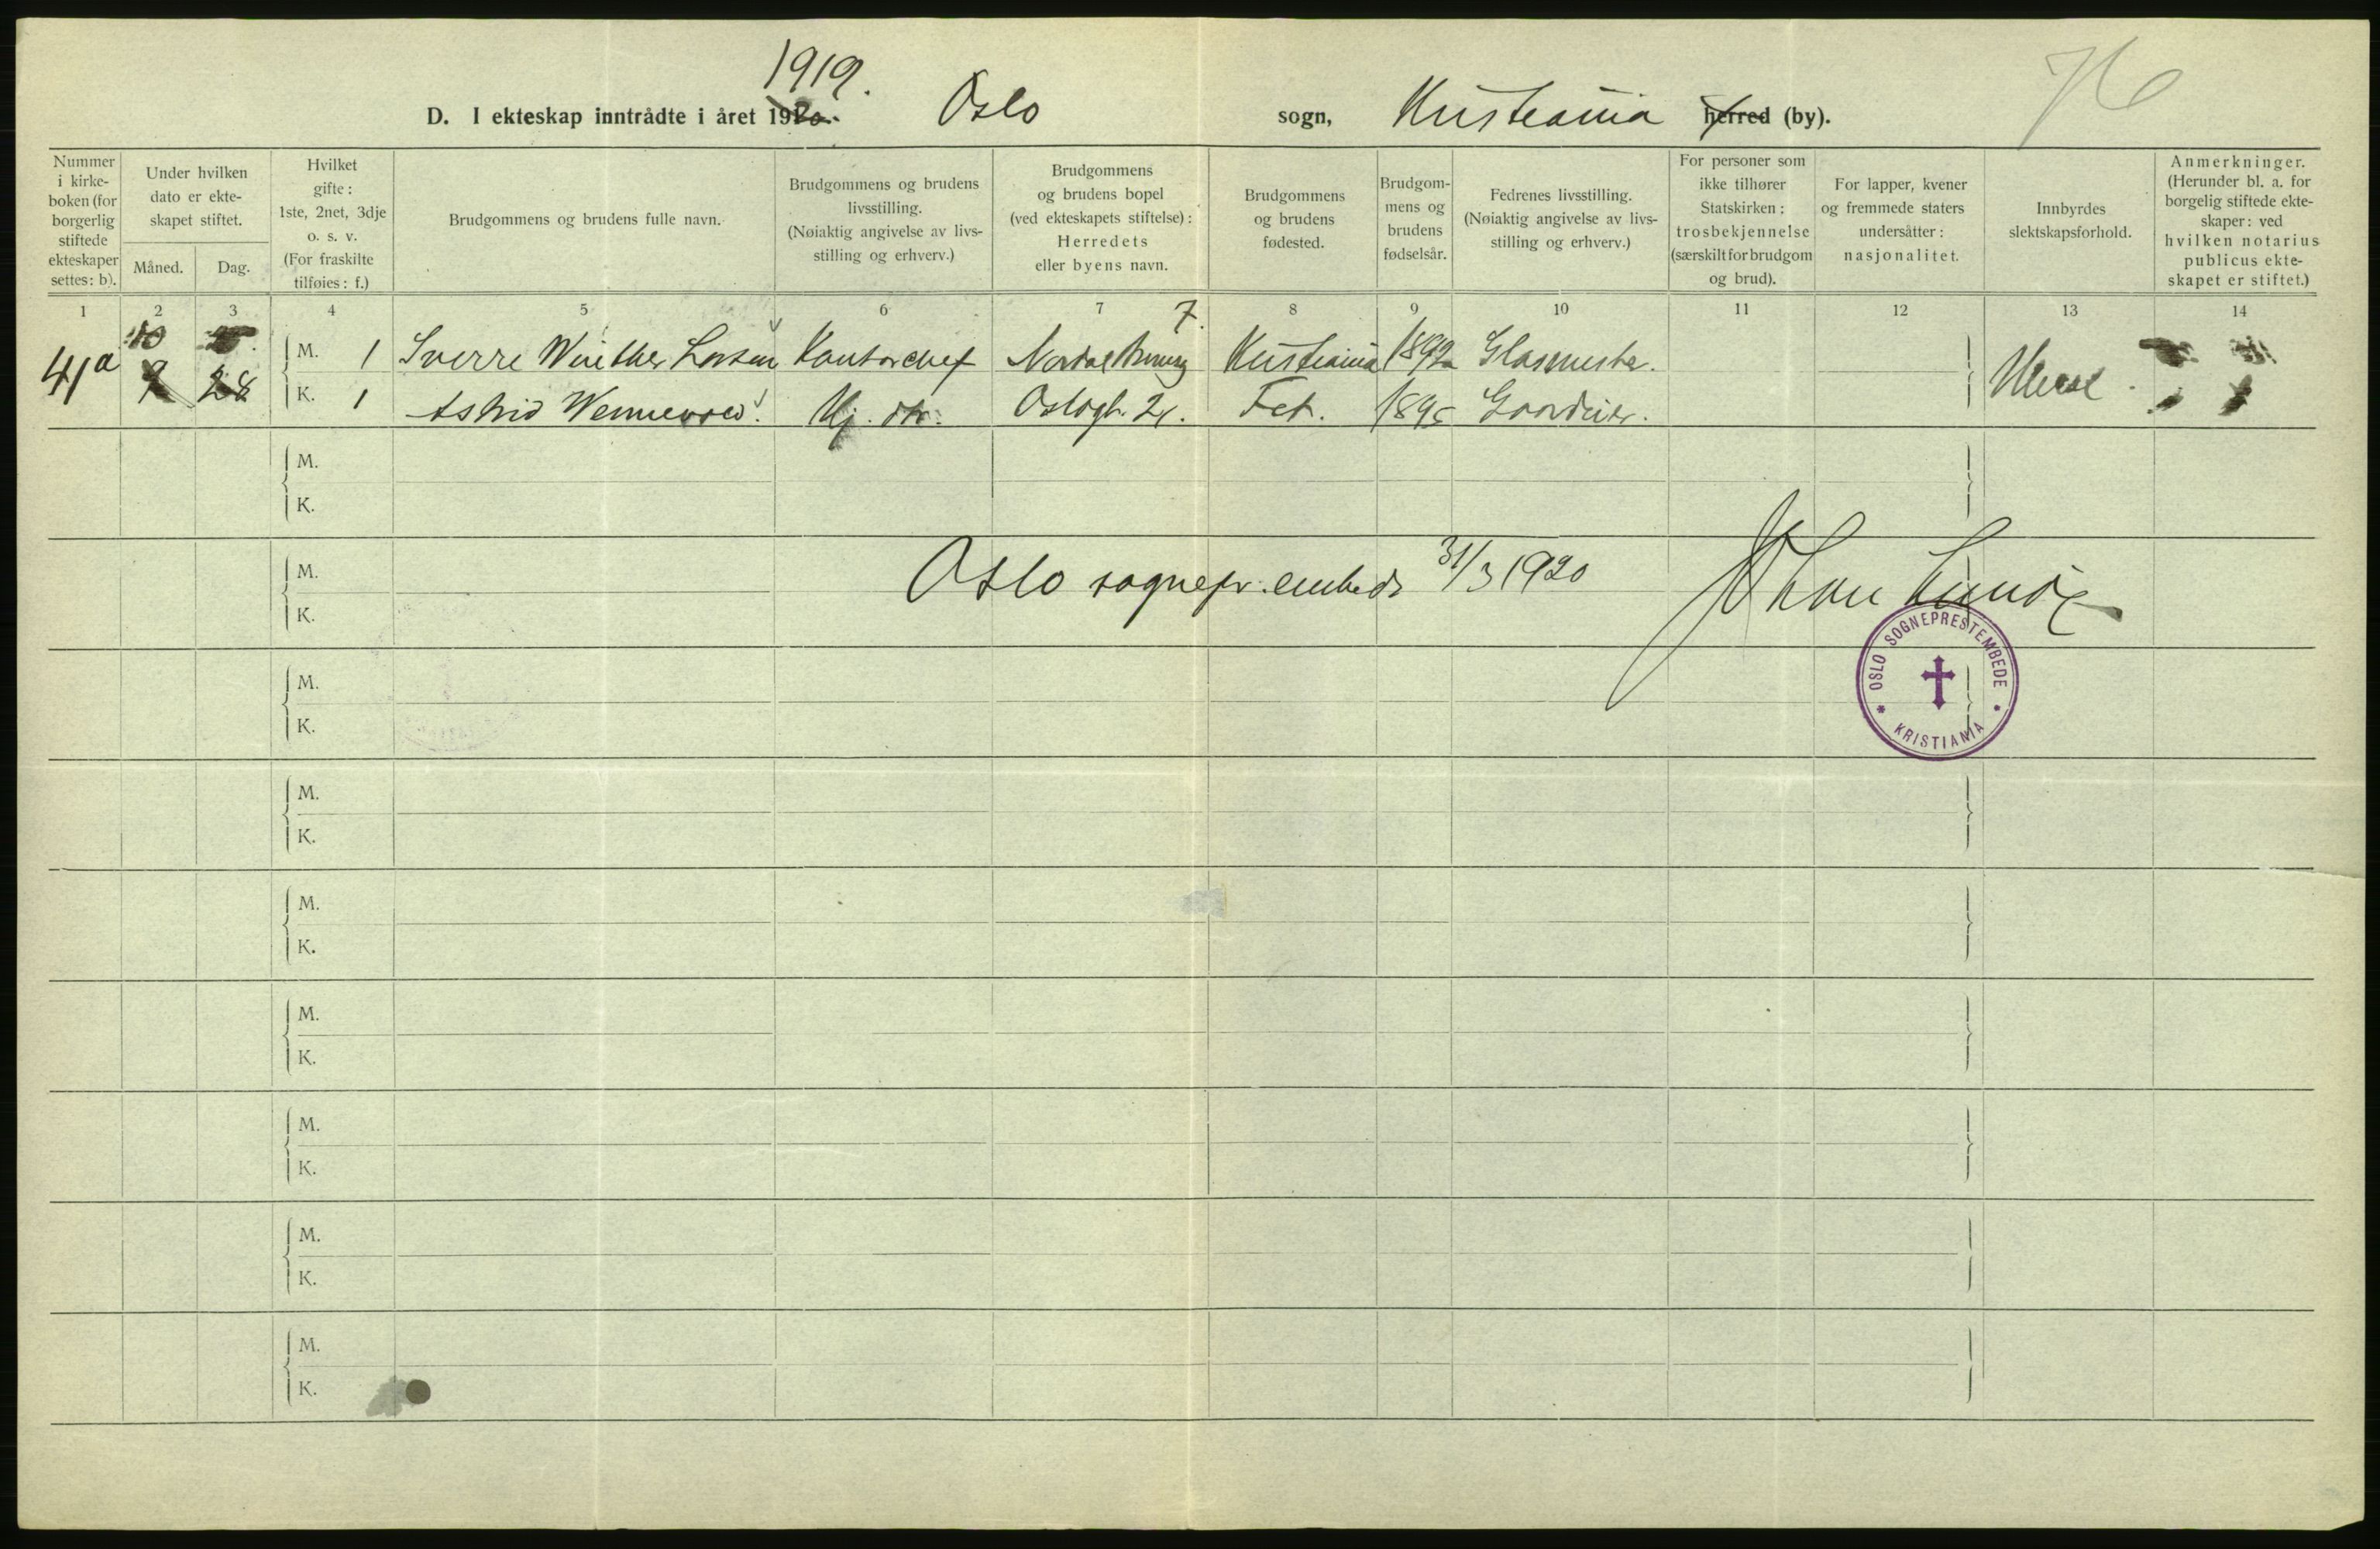 1919.
76
D. I ekteskap inntrådte i året 1920. Oslo sogn, Kristiania herred (by).
Nummer
i kirke-
boken (for
borgerlig
stiftede
ekteskaper
settes: b).
Under hvilken
dato er ekte-
skapet stiftet.
Måned.
Dag.
Hvilket
gifte:
1ste, 2net, 3dje
o. s. v.
(For fraskilte
tilføies: f.)
Brudgommens og brudens fulle navn.
Brudgommens og brudens
livsstilling.
(Nøiaktig angivelse av livs-
stilling og erhverv.)
Brudgommens
og brudens bopel
(ved ekteskapets stiftelse):
Herredets
eller byens navn.
Brudgommens
og brudens
fødested.
Brudgom-
mens og
brudens
fødselsår.
Fedrenes livsstilling.
(Nøiaktig angivelse av livs-
stilling og erhverv.)
For personer som
ikke tilhører
Statskirken:
trosbekjennelse
(særskilt for brudgom
og brud).
For lapper, kvener
og fremmede staters
undersåtter:
nasjonalitet.
Innbyrdes
slektskapsforhold.
Anmerkninger.
(Herunder bl. a. for
borgelig stiftede ekte-
skaper: ved
hvilken notarius
publicus ekte-
skapet er stiftet.)
1 2 3 4 5 6 7 8 9 10 11 12 13 14
7.
10
41a 9 28
M. 1 Sverre Winther Larsen Kontorchef Kristiania 1892 Glasmester.
K. 1 Astrid Hj. dtr. Oslogt. 21. Fet. 1895
M.
K.
M.
Oslo sognepr. embede 31/3 1920
K.
OSLO SOGNEPRESTEMBEDE
KRISTIANIA
M.
K.
M.
K.
M.
K.
M.
K.
M.
K.
M.
K.
M.
K.